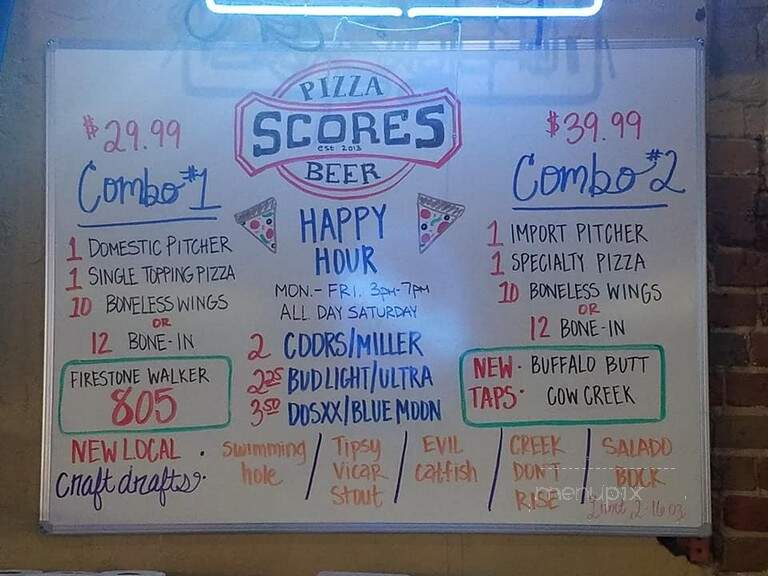 PIZZA
SCORES
est 2013
BEER
$29.99
Combo #1
1 DOMESTIC PITCHER
1 SINGLE TOPPING PIZZA
10 BONELESS WINGS
OR
12 BONE-IN
FIRESTONE WALKER
805
HAPPY
HOUR
MON.- FRI. 3PM-7PM
ALL DAY SATURDAY
2 COORS/MILLER
2.25 BUD LIGHT/ULTRA
3.50 DOSXX/BLUE MOON
$39.99
Combo #2
1 IMPORT PITCHER
1 SPECIALTY PIZZA
10 BONELESS WINGS
OR
12 BONE-IN
NEW · BUFFALO BUTT
TAPS · COW CREEK
NEW LOCAL
craft drafts:
swimming
hole
Tipsy
Vicar
Stout
EVIL
catfish
CREEK
DON'T
RISE
SALADO
BOCK
Limit 2-16 oz.
menupix